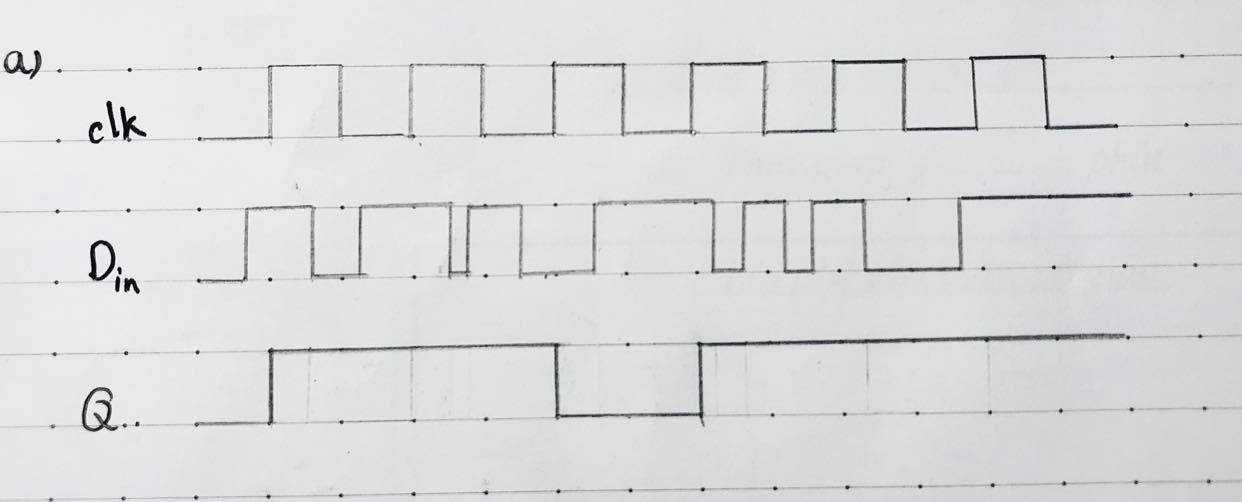 a)
clk
Din
Q..